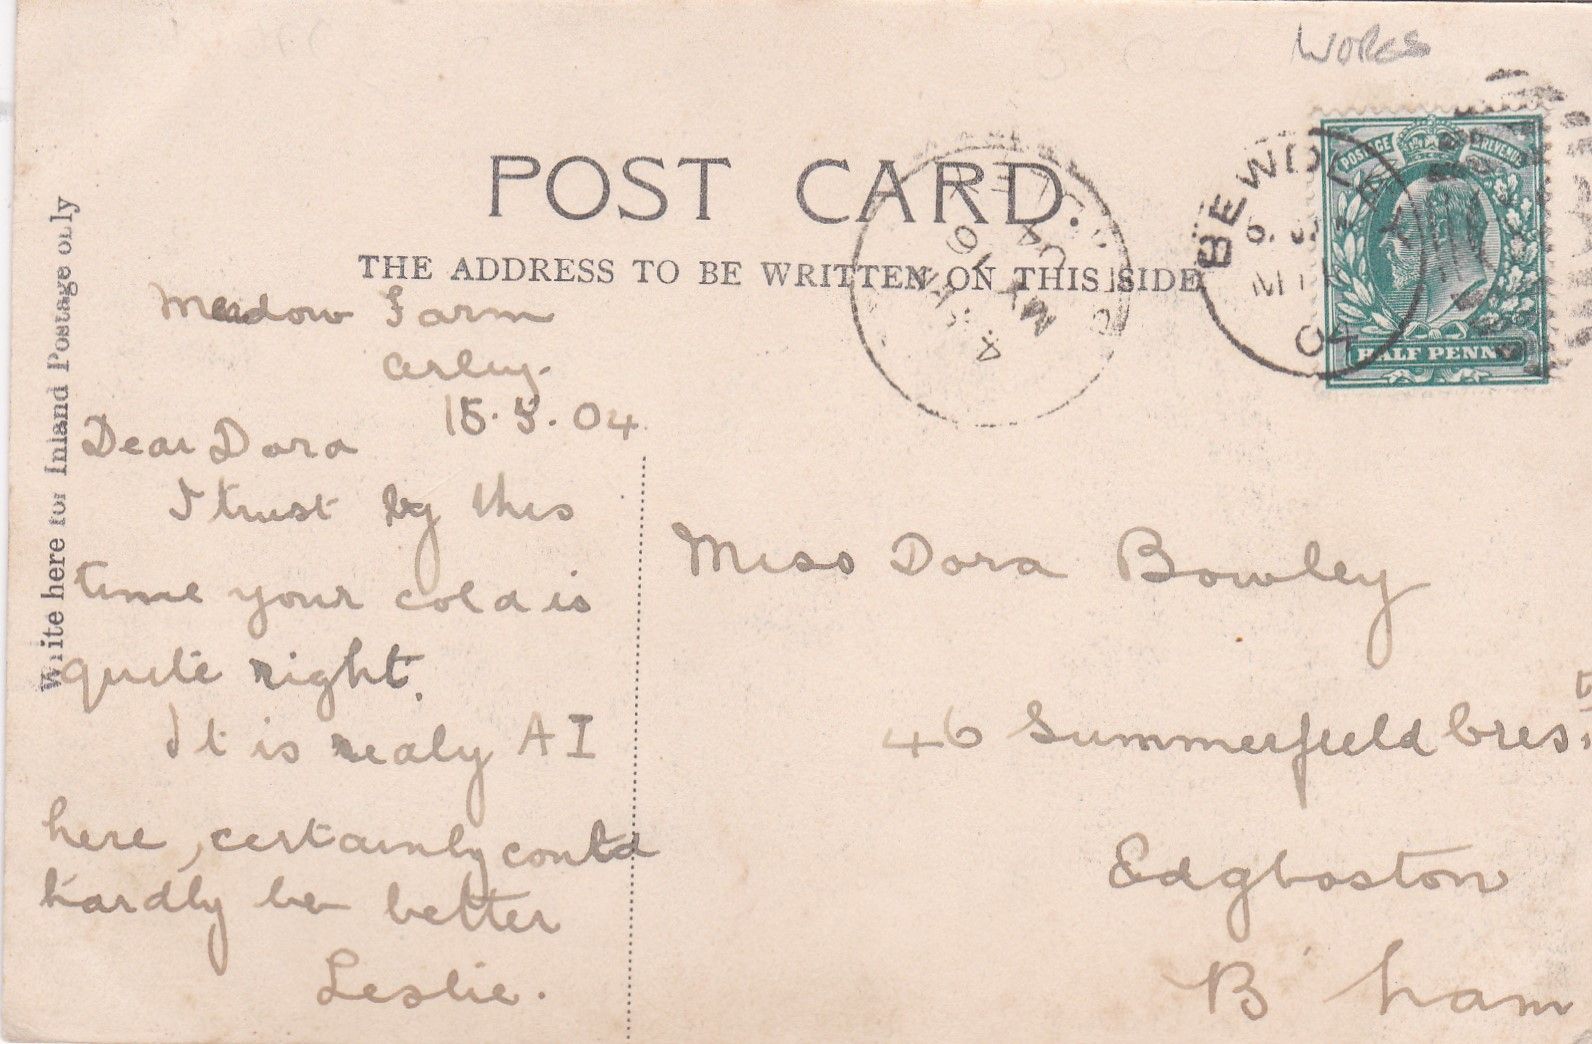 Worcs
POST CARD.
THE ADDRESS TO BE WRITTEN ON THIS SIDE
Write here for Inland Postage only
POSTAGE REVENUE
HALF PENNY
BEWDLEY
MY 15
04
MY 16
04
Meadow Farm
Arley.
15.5.04
Dear Dora
I trust by this
time your cold is
quite right.
It is realy A I
here, certainly could
hardly be better
Leslie.
Miss Dora Bowley
46 Summerfield Cres.t
Edgbaston
B'ham